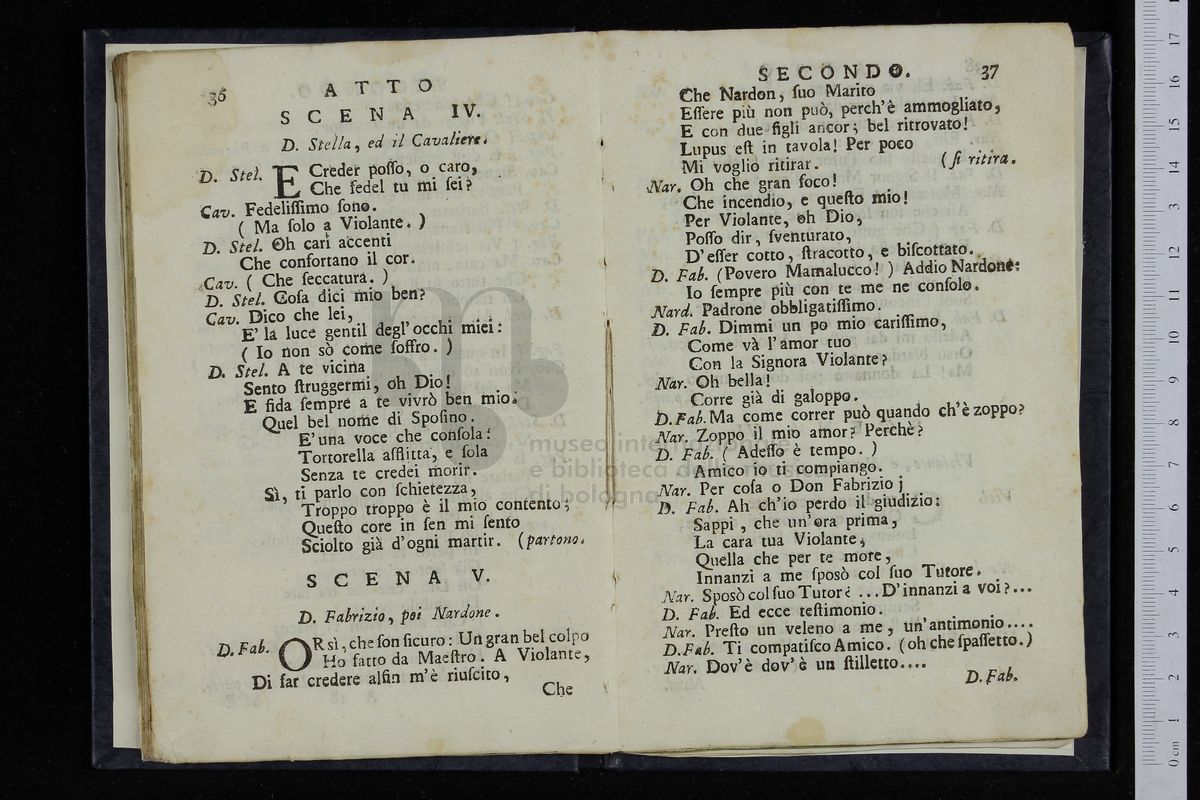 36
ATTO
SCENA IV.
D. Stella, ed il Cavaliere.
D. Stel. E Creder poſſo, o caro,
Che fedel tu mi ſei?
Cav. Fedeliſſimo ſono.
( Ma ſolo a Violante. )
D. Stel. Oh cari accenti
Che confortano il cor.
Cav. ( Che ſeccatura. )
D. Stel. Coſa dici mio ben?
Cav. Dico che lei,
E' la luce gentil degl' occhi miei:
( Io non sò come ſoffro. )
D. Stel. A te vicina
Sento ſtruggermi, oh Dio!
E fida ſempre a te vivrò ben mio.
Quel bel nome di Spoſino.
E' una voce che conſola:
Tortorella afflitta, e ſola
Senza te credei morir.
Sì, ti parlo con ſchietezza,
Troppo troppo è il mio contento;
Queſto core in ſen mi ſento
Sciolto già d'ogni martir. (partono.
SCENA V.
D. Fabrizio, poi Nardone.
D. Fab. OR sì, che ſon ſicuro: Un gran bel colpo
Ho fatto da Maeſtro. A Violante,
Di far credere alfin m'è riuſcito,
Che
SECONDO. 37
Che Nardon, ſuo Marito
Eſſere più non può, perch'è ammogliato,
E con due figli ancor; bel ritrovato!
Lupus eſt in tavola! Per poco
Mi voglio ritirar. (ſi ritira.
Nar. Oh che gran foco!
Che incendio, e queſto mio!
Per Violante, oh Dio,
Poſſo dir, ſventurato,
D'eſſer cotto, ſtracotto, e biſcottato.
D. Fab. (Povero Mamalucco! ) Addio Nardone:
Io ſempre più con te me ne conſolo.
Nard. Padrone obbligatiſſimo.
D. Fab. Dimmi un po mio cariſſimo,
Come và l'amor tuo
Con la Signora Violante?
Nar. Oh bella!
Corre già di galoppo.
D. Fab. Ma come correr può quando ch'è zoppo?
Nar. Zoppo il mio amor? Perchè?
D. Fab. ( Adeſſo è tempo. )
Amico io ti compiango.
Nar. Per coſa o Don Fabrizio;
D. Fab. Ah ch'io perdo il giudizio:
Sappi, che un'ora prima,
La cara tua Violante,
Quella che per te more,
Innanzi a me ſposò col ſuo Tutore.
Nar. Sposò col ſuo Tutore ...D'innanzi a voi?...
D. Fab. Ed ecce teſtimonio.
Nar. Preſto un veleno a me, un'antimonio....
D. Fab. Ti compatiſco Amico. (oh che ſpaſſetto.)
Nar. Dov'è dov'è un ſtilletto....
D. Fab.
museo internazionale
e biblioteca della musica
di bologna